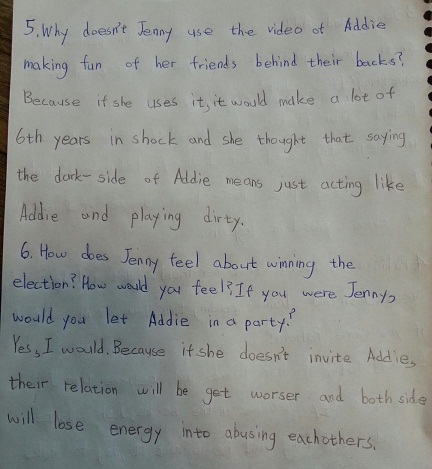 5. Why doesn't Jenny use the video of Addie
making fun of her friends behind their backs?
Because if she uses it, it would make a lot of
6th years in shock and she thought that saying
the dark-side of Addie means just acting like
Addie and playing dirty.
6. How does Jenny feel about winning the
election? How would you feel? If you were Jenny,
would you let Addie in a party?
Yes, I would. Because if she doesn't invite Addie,
their relation will be get worser and both side
will lose energy into abusing eachothers.